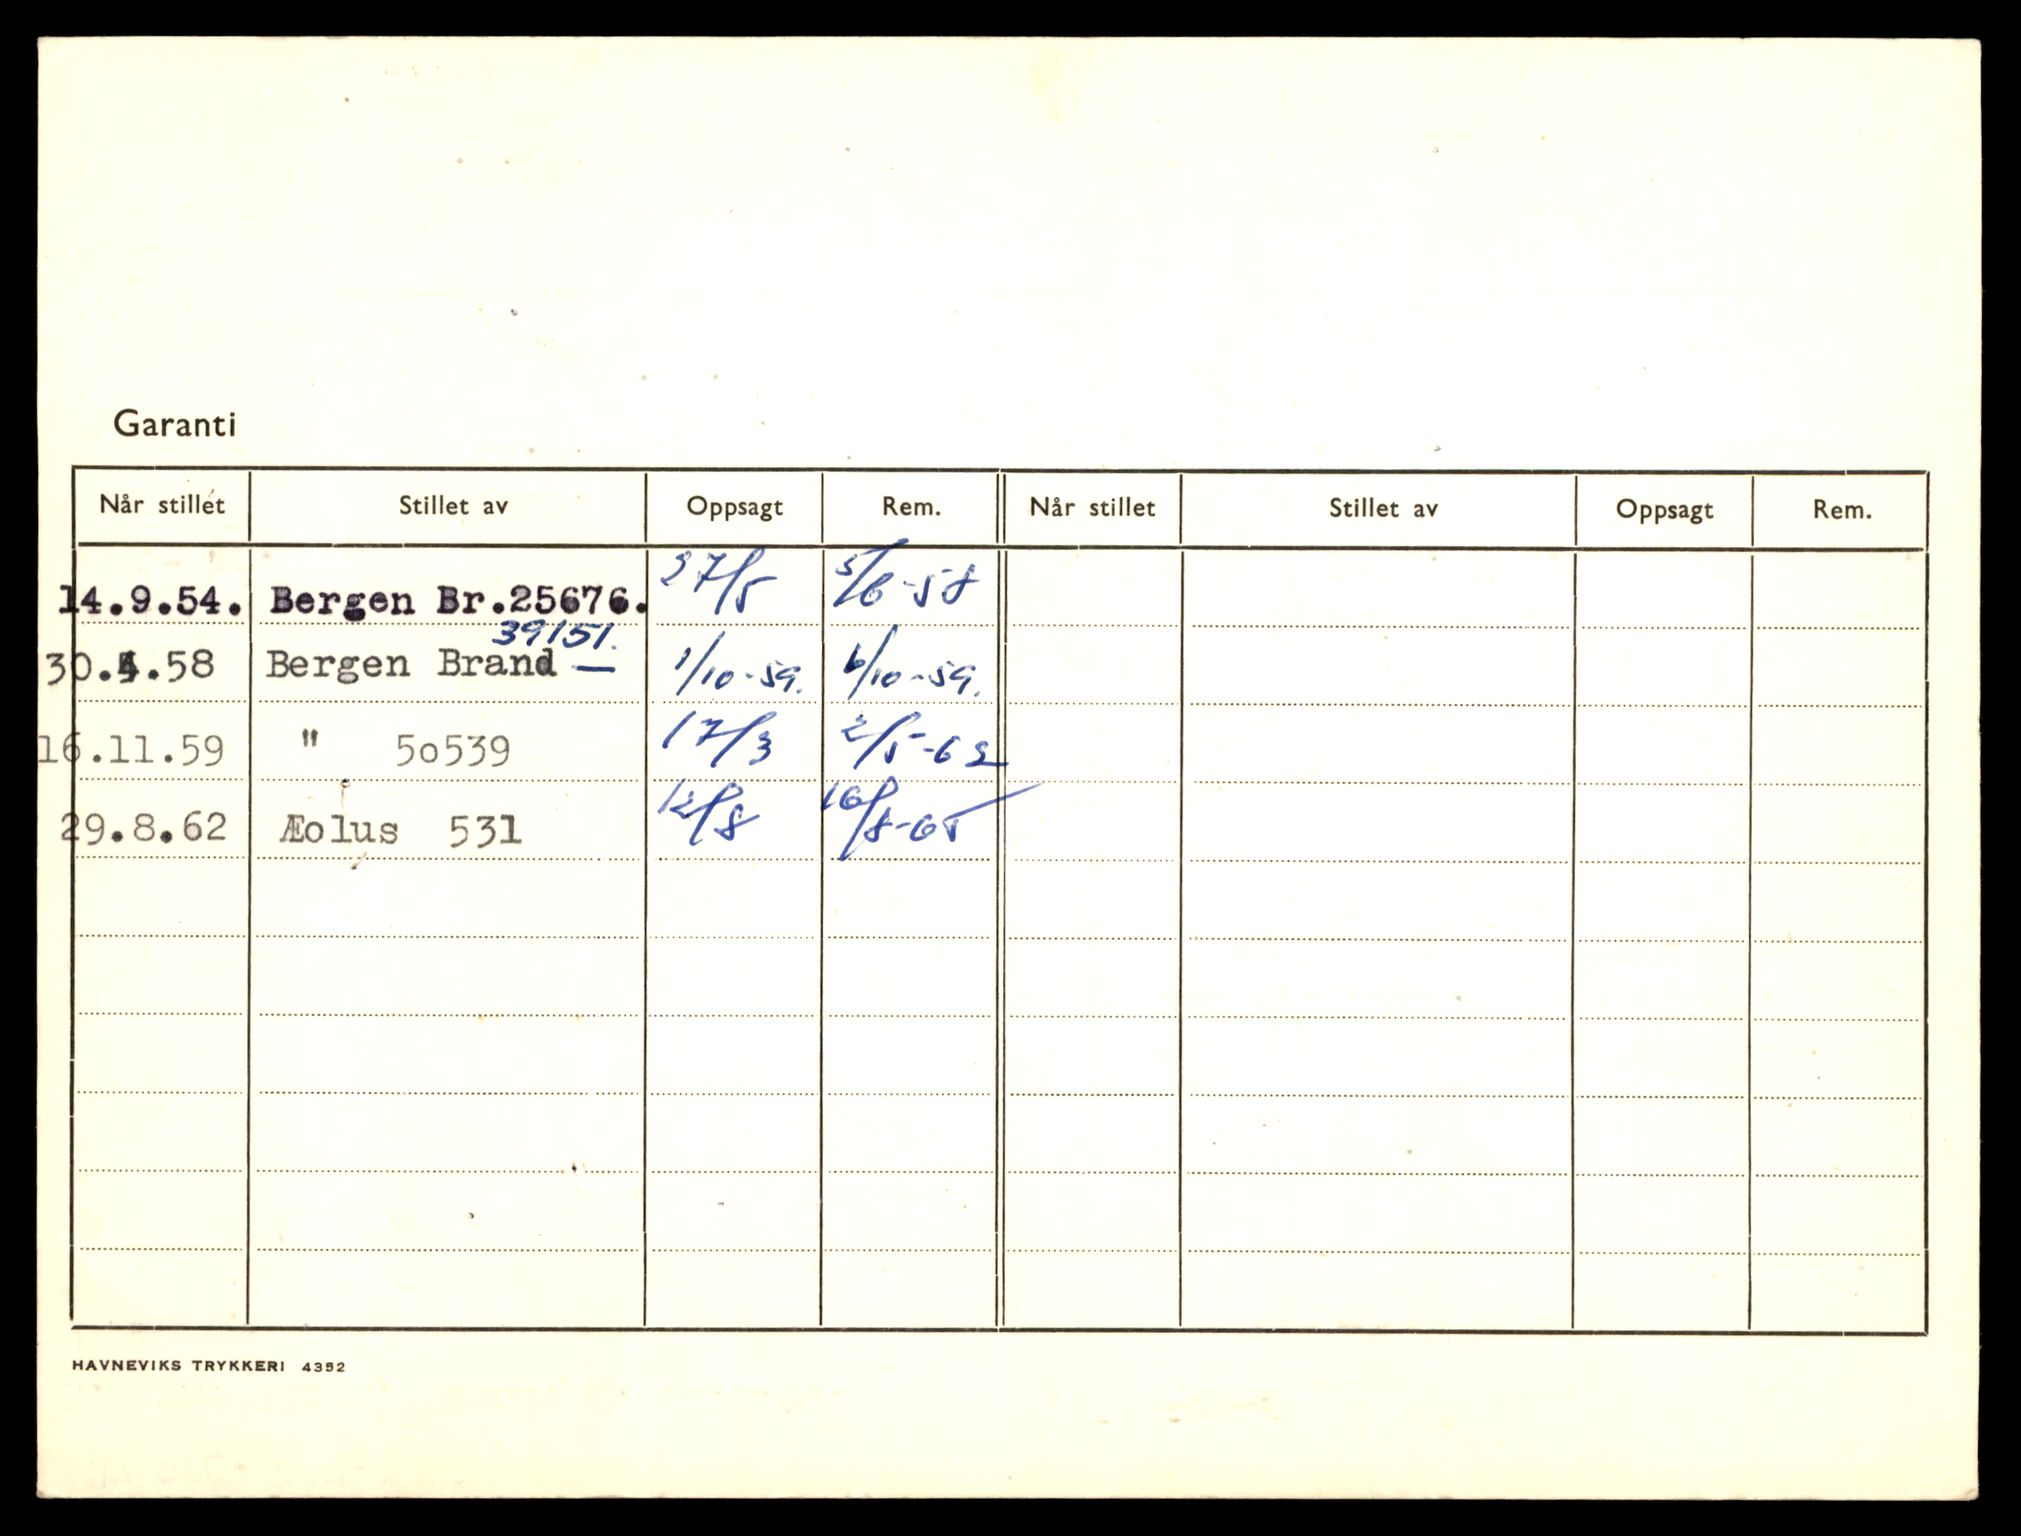 Garanti
Når stillet Stillet av Oppsagt Rem. Når stillet Stillet av Oppsagt Rem.
14.9.54. Bergen Br.25676. 27/5 5/6-58
39151.
30.5.58 Bergen Brand — 1/10-59. 6/10-59.
16.11.59 " 5o539 17/3 2/5-62
29.8.62 Æolus 531 12/8 16/8-65
HAVNEVIKS TRYKKERI 4352